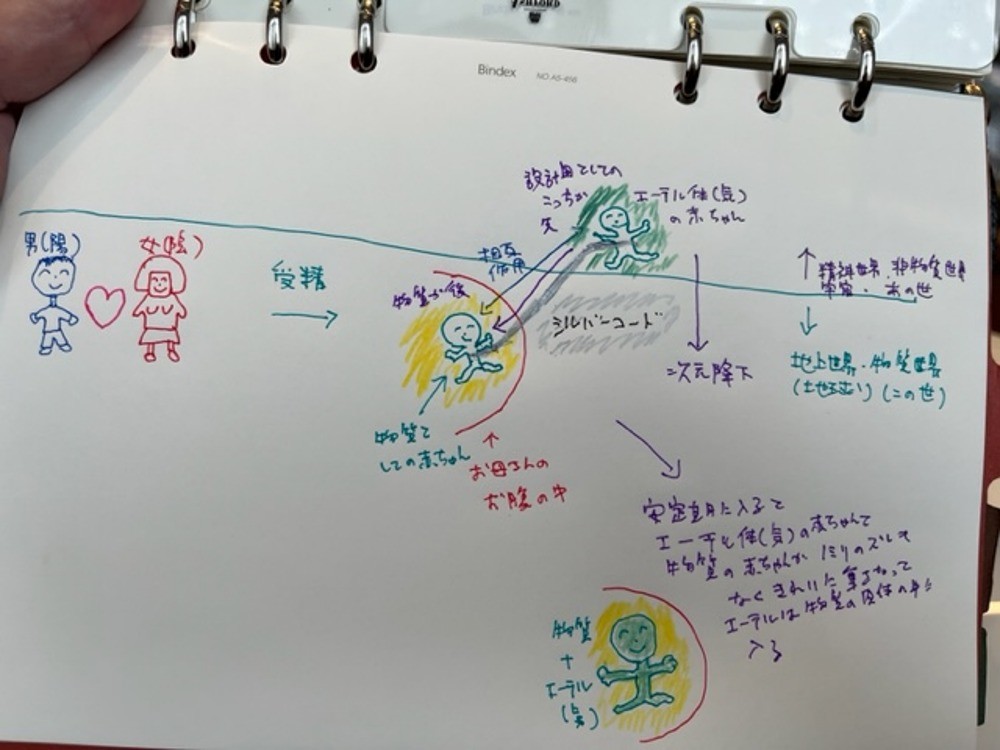 Bindex NO.A5-456
設計図としての
こっちが
先
エーテル体(気)
の赤ちゃん
男(陽)
女(陰)
受精
相互
作用
物質が後
シルバーコード
二次元降下
↑精神世界・非物質世界
宇宙・あの世
↓
地上世界・物質世界
(土地巡り) (この世)
物質と
しての赤ちゃん
お母さんの
お腹の中
安定期に入ると
エーテル体(気)の赤ちゃんと
物質の赤ちゃんが1ミリのズレも
なくきれいに重なって
エーテルは物質の肉体の中に
入る
物質
+
エーテル
(気)